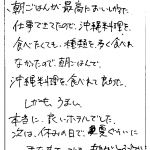 朝ごはんが最高においしかった。
仕事できてたので、沖縄料理を
食べたくても、種類を多く食べれ
なかたので、朝ごはんで、
沖縄料理を、食べれて良かった。
しかも、うまい。
本当に、良いホテルでした。
次は、休みの日で夏ぐらいに